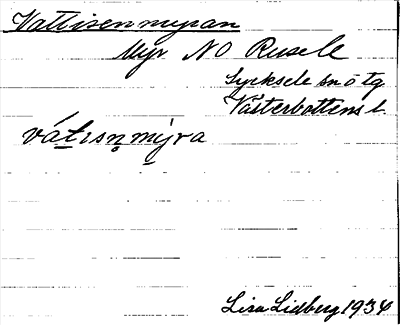 Vattisenmyran
Myr NO Rusele
Lycksele sn o tg
Västerbottens l.
vát̲ɪsn̥mýra
Lisa Lidberg 1934